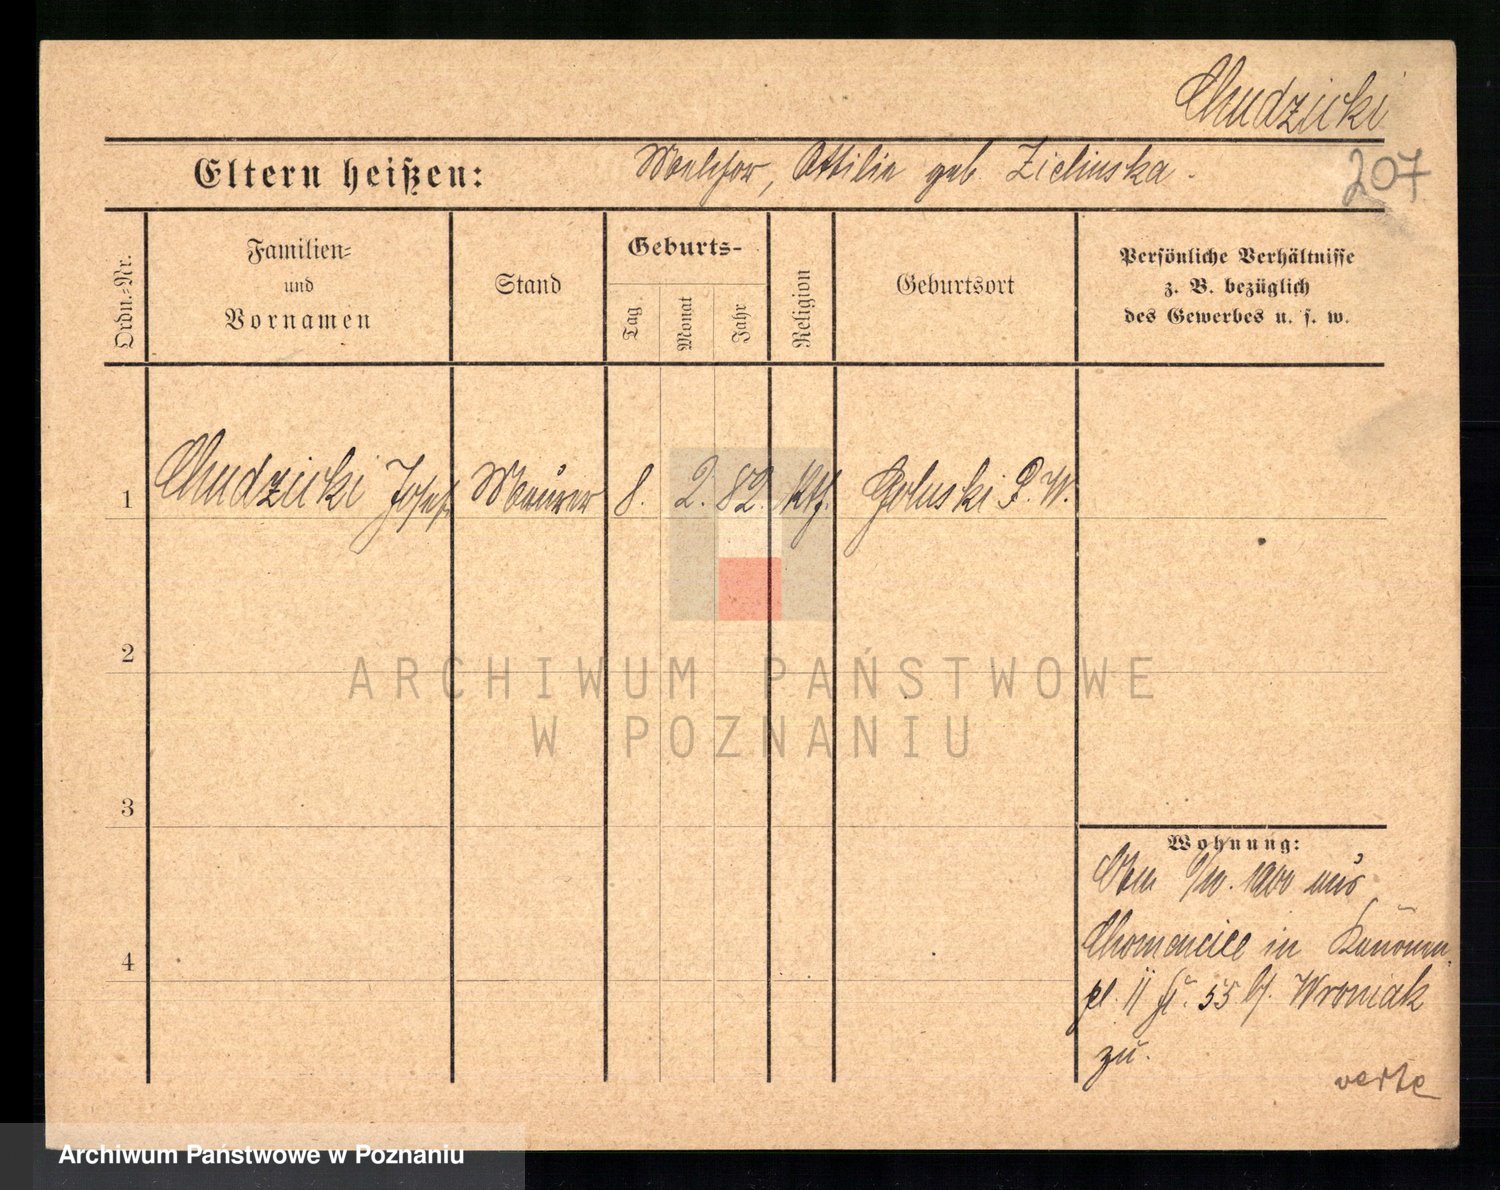 Chudzicki
207
Eltern heißen: Melchior, Ottilie geb. Zielinska.
Ordn.-Nr.
Familien- und Vornamen
Stand
Geburts-
Tag
Monat
Jahr
Religion
Geburtsort
Persönliche Verhältnisse
z. B. bezüglich
des Gewerbes u. s. w.
1 Chudzicki Josef Maurer 8. 2. 82. kth. Goluski P. W.
2
3
4
ARCHIWUM PAŃSTWOWE
W POZNANIU
Wohnung:
1900 aus
Chomencice in Kanonen
pl. 11 55 b/. Wroniak
zu.
verte
Archiwum Państwowe w Poznaniu